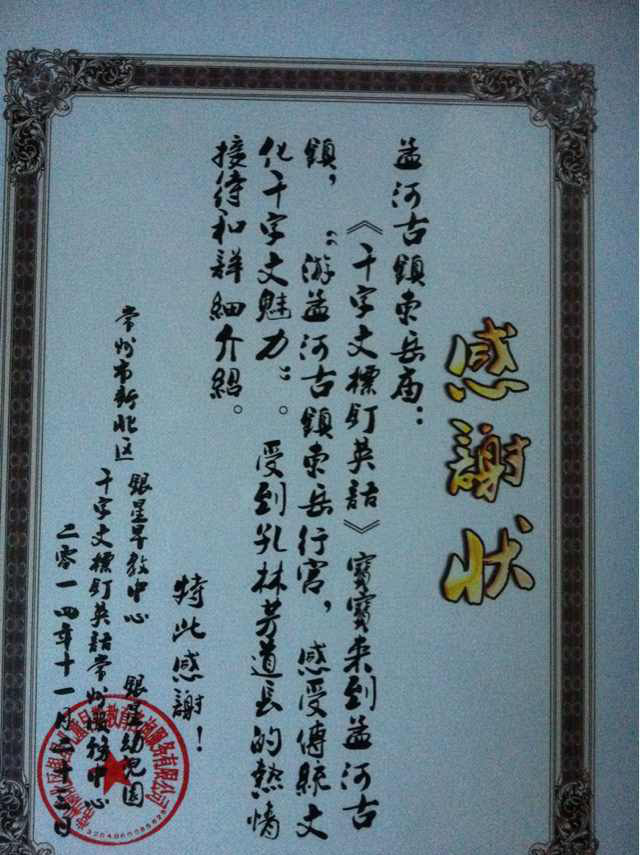 感謝状
孟河古鎮東岳庙：
《千字文標釘英話》寶寶来到孟河古
鎮，“游孟河古鎮東岳行宫，感受傳統文
化千字文魅力”。受到孔林芳道长的熱情
接待和詳細介紹。
特此感謝！
常州市新北区 銀星早教中心 銀星幼儿园
千字文標釘英話常州服務中心
二零一四年十一月二十三日